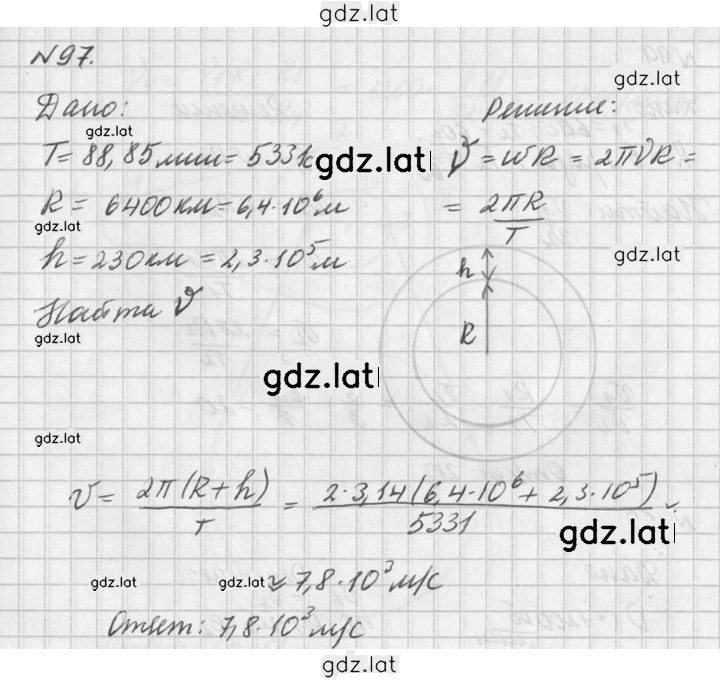 gdz.lat
N97.
gdz.lat
Дано: Решение:
gdz.lat
T = 88,85 мин = 5331 с gdz.lat V = ωR = 2πνR =
R = 6400 км = 6,4·10⁶ м = 2πR/T
gdz.lat
h = 230 км = 2,3·10⁵ м gdz.lat
h
Найти V
gdz.lat R
gdz.lat
gdz.lat
V = 2π(R+h)/T = 2·3,14(6,4·10⁶ + 2,3·10⁵)/5331 ≈
gdz.lat
gdz.lat gdz.lat ≈ 7,8·10³ м/с gdz.lat
Ответ: 7,8·10³ м/с
gdz.lat